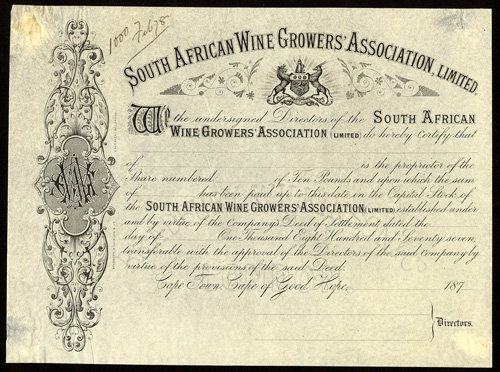 1000 Feb 78
SOUTH AFRICAN WINE GROWERS' ASSOCIATION, LIMITED.
We the undersigned Directors of the SOUTH AFRICAN
WINE GROWERS' ASSOCIATION (LIMITED) do hereby certify that
of is the proprietor of the
Share numbered of Ten Pounds and upon which the sum
of has been paid up to this date in the Capital Stock of
the SOUTH AFRICAN WINE GROWERS' ASSOCIATION (LIMITED) established under
and by virtue of the Company's Deed of Settlement dated the
day of One Thousand Eight Hundred and Seventy seven,
transferable with the approval of the Directors of the said Company by
virtue of the provisions of the said Deed.
Cape Town, Cape of Good Hope, 187
Directors.